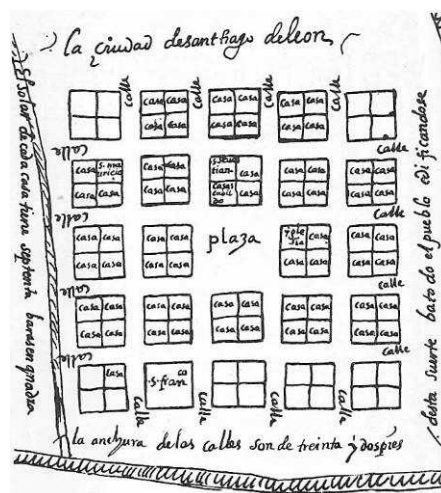 La çiudad desanthago deleon
El solar de cada casa tiene septenta baras en quadra
calle calle calle calle
casa casa casa casa casa casa
casa casa casa casa casa casa
calle calle
casa s.mauricio casa casa s.sebastian casa casa casa casa casa
casa casa casa casa casas cabildo casa casa casa casa casa
calle calle
casa casa casa casa plaza iglesia casa casa casa
casa casa casa casa casa casa casa casa
calle calle
casa casa casa casa casa casa casa casa casa casa
casa casa casa casa casa casa casa casa casa casa
calle calle
casa s.franco
calle calle calle calle
la anchura delas calles son de treinta y dos pies
desta suerte bato do el pueblo edificandose